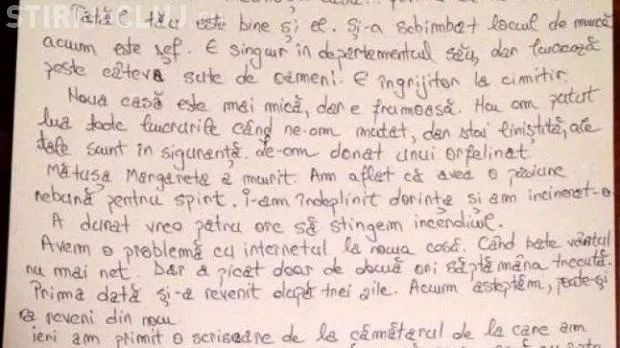 STIRI CLUJ
Tatăl tău este bine și el. Și-a schimbat locul de muncă
acum este șef. E singur în departamentul său, dar lucrează
peste câteva sute de oameni. E îngrijitor la cimitir.
Noua casă este mai mică, dar e frumoasă. Nu am putut
lua toate lucrurile când ne-am mutat, dar stai liniștită, ale
tale sunt în siguranță. Le-am donat unui orfelinat
Mătușa Margareta a murit. Am aflat că avea o pasiune
nebună pentru spirt. I-am îndeplinit dorința si am incinerat-o
A durat vreo patru ore să stingem incendiul.
Avem o problemă cu internetul la noua casă. Când bate vântul
nu mai net. Dar a picat doar de două ori săptămâna trecută.
Prima dată și-a revenit după trei zile. Acum așteptăm, poate-și
a reveni din nou
ieni am primit o scrisoare de la cămătarul de la care am